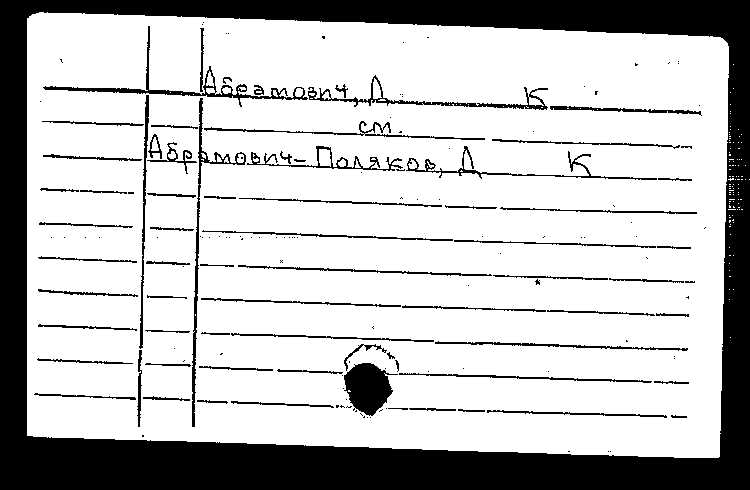 Абрамович, Д К
см.
Абрамович-Поляков, Д К